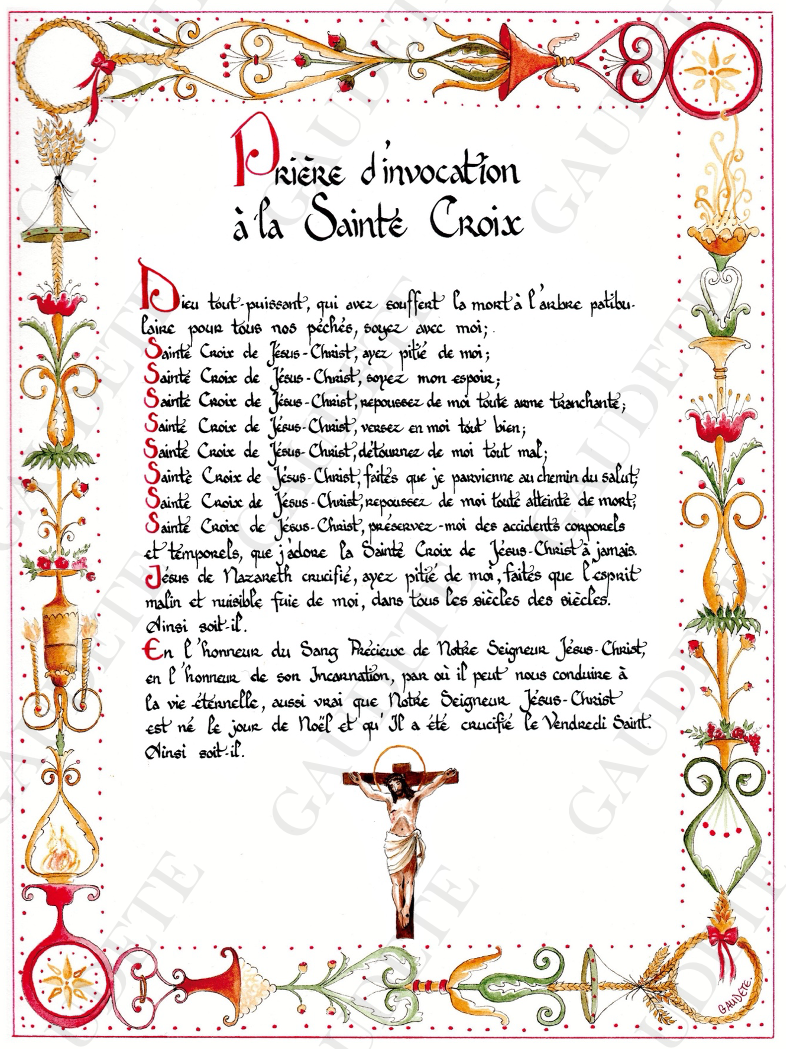 Prière d'invocation
à la Sainte Croix
Dieu tout-puissant, qui avez souffert la mort à l'arbre patibu-
laire pour tous nos péchés, soyez avec moi;
Sainte Croix de Jésus-Christ, ayez pitié de moi;
Sainte Croix de Jésus-Christ, soyez mon espoir;
Sainte Croix de Jésus-Christ, repoussez de moi toute arme tranchante;
Sainte Croix de Jésus-Christ, versez en moi tout bien;
Sainte Croix de Jésus-Christ, détournez de moi tout mal;
Sainte Croix de Jésus-Christ, faites que je parvienne au chemin du salut;
Sainte Croix de Jésus-Christ, repoussez de moi toute atteinte de mort;
Sainte Croix de Jésus-Christ, préservez-moi des accidents corporels
et temporels, que j'adore la Sainte Croix de Jésus-Christ à jamais.
Jésus de Nazareth crucifié, ayez pitié de moi, faites que l'esprit
malin et nuisible fuie de moi, dans tous les siècles des siècles.
Ainsi soit-il.
En l'honneur du Sang Précieux de Notre Seigneur Jésus-Christ,
en l'honneur de son Incarnation, par où il peut nous conduire à
la vie éternelle, aussi vrai que Notre Seigneur Jésus-Christ
est né le jour de Noël et qu'Il a été crucifié le Vendredi Saint.
Ainsi soit-il.
GAUDETE